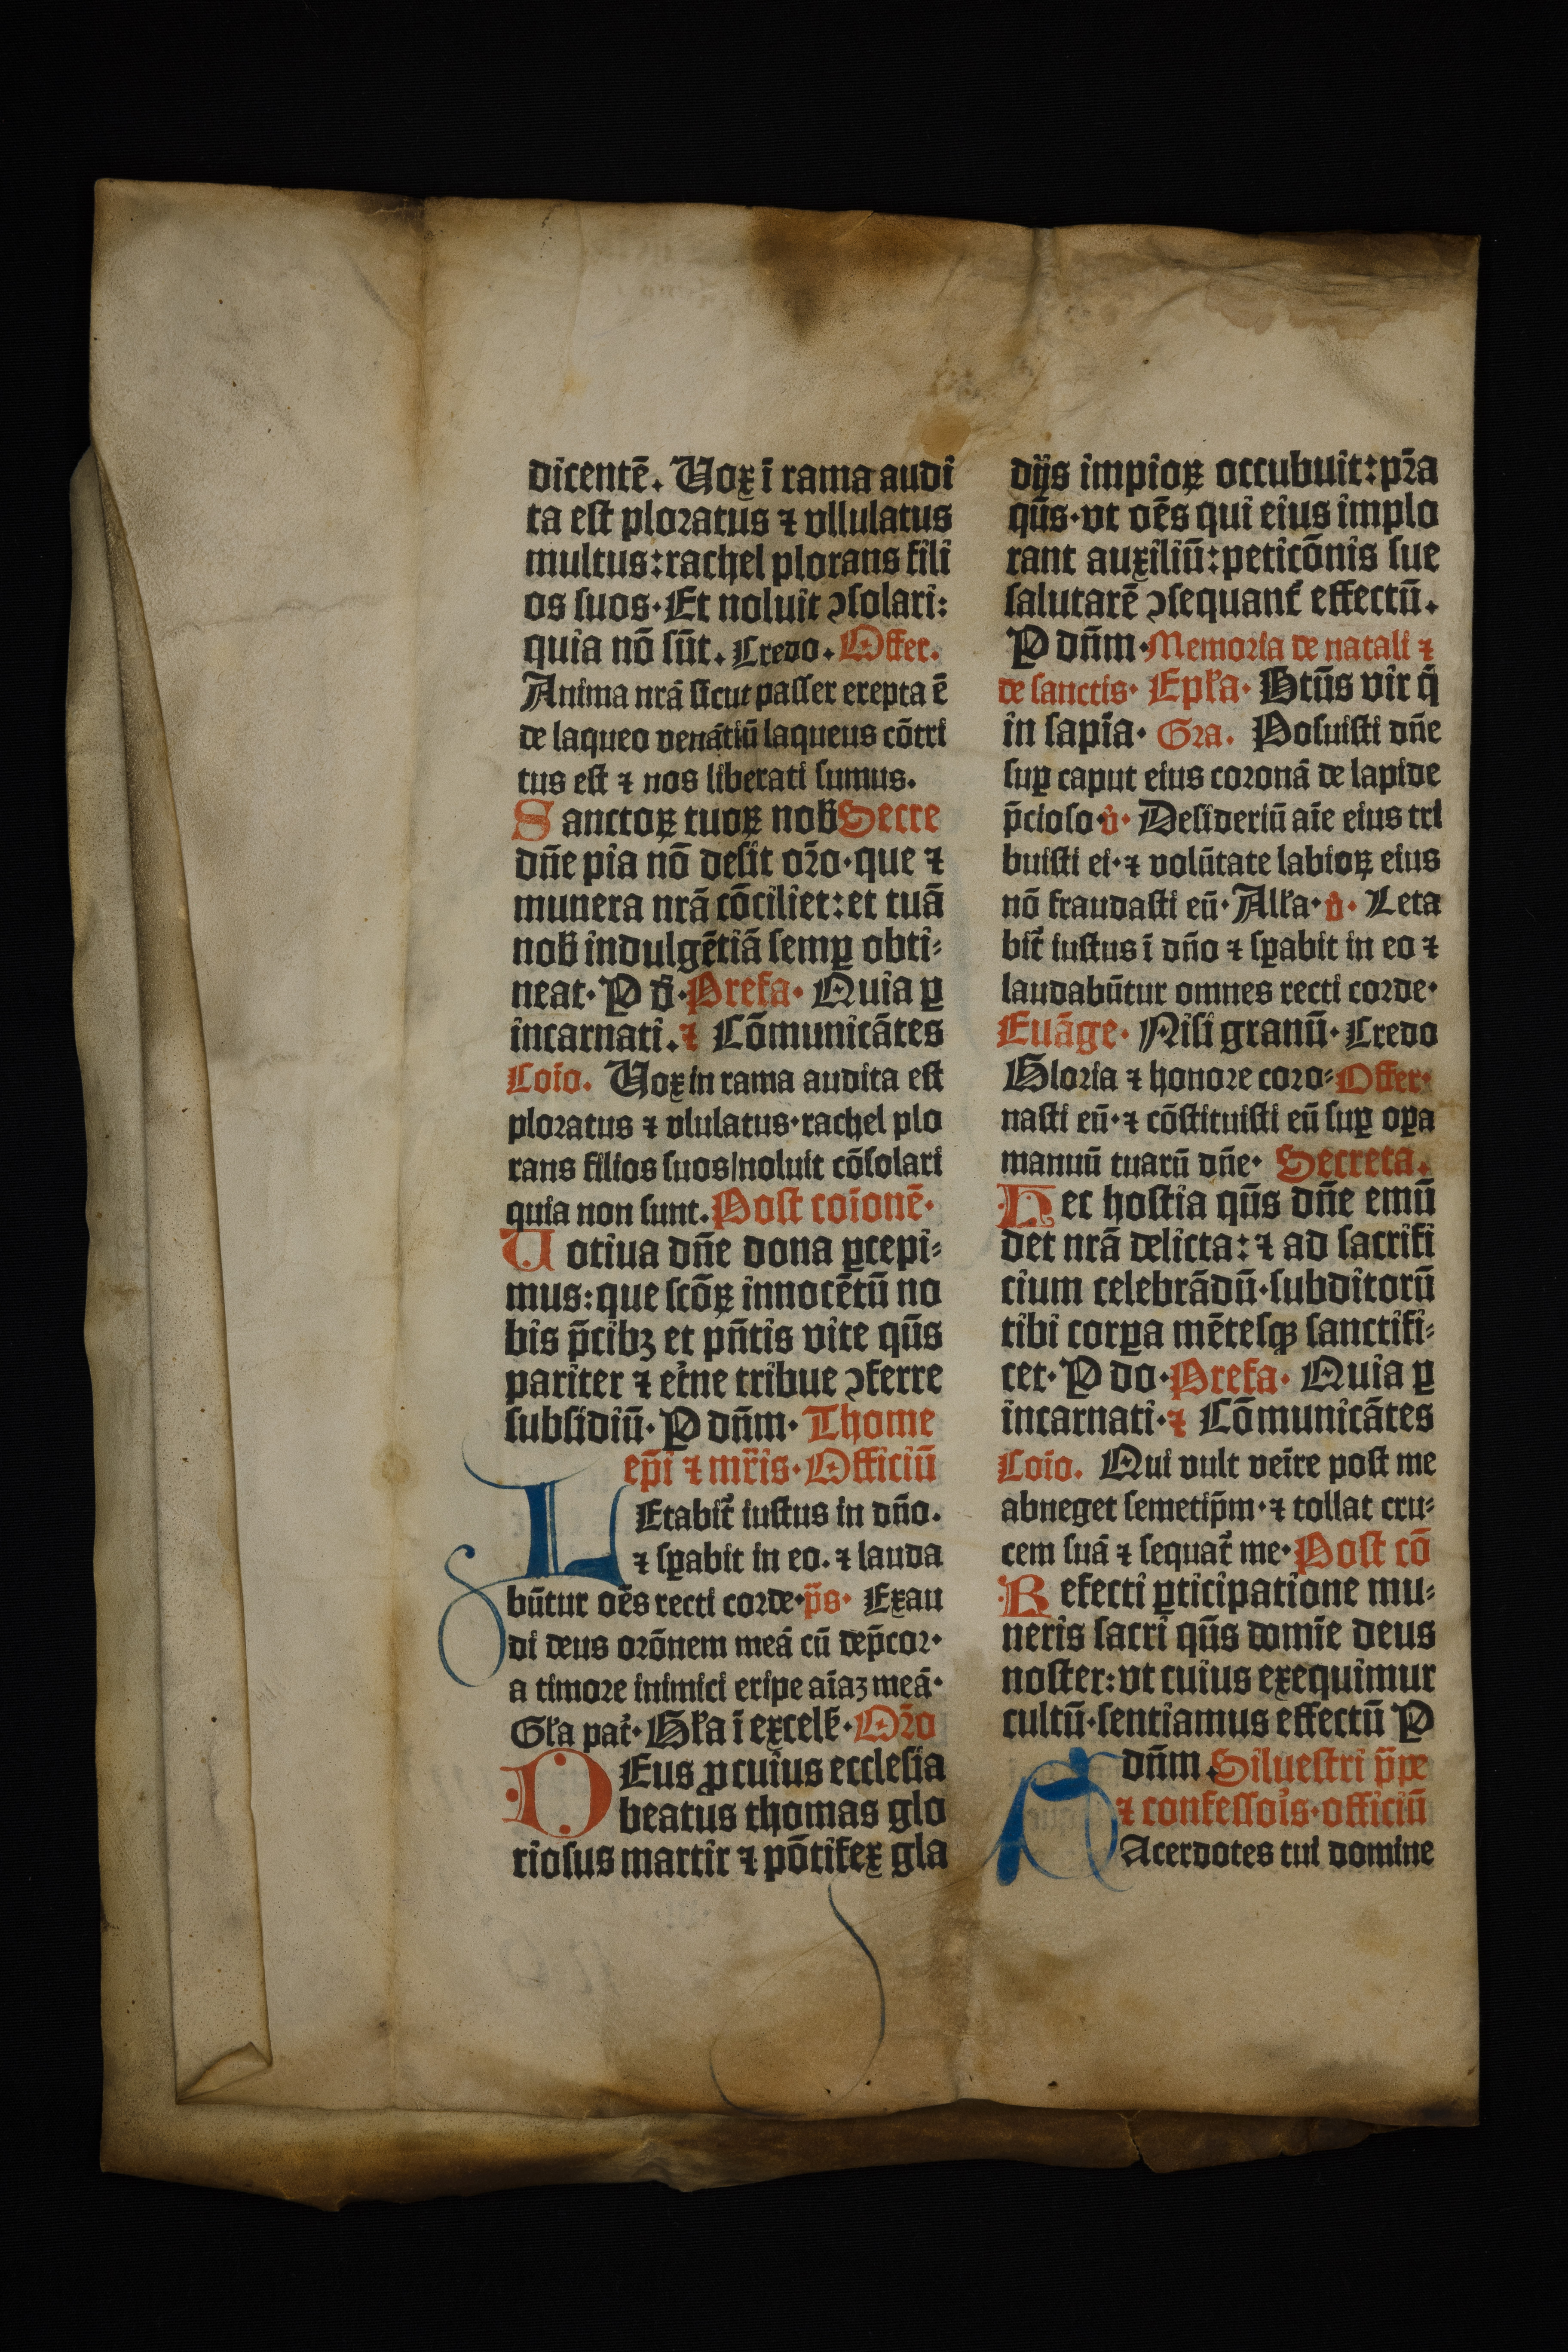 dicentē. Uox ī rama audi
ta eſt ploꝛatus ⁊ vllulatus
multus: rachel plorans fili
os ſuos· Et noluit ↄſolari:
quia nō ſūt. Credo. Offer.
Anima nrā ſicut paſſer erepta ē
de laqueo venātiū laqueus cōtri
tus eſt ⁊ nos liberati ſumus.
Sanctoꝝ tuoꝝ nob̄ Secre
dn̄e pia nō deſit oꝛ̄o· que ⁊
munera nrā cōciliet: et tuā
nob̄ indulgētiā ſemꝑ obti⸗
neat· P d̄· Prefa· Quia ꝑ
incarnati. ⁊ Cōmunicātes
Coīo. Uox in rama audita eſt
ploꝛatus ⁊ vlulatus· rachel plo
rans filios ſuos/ noluit cōſolari
quia non ſunt. Poſt coīonē·
Uotiua dn̄e dona ꝑcepi⸗
mus: que ſcōꝝ innocētū no
bis p̄cibꝫ et pn̄tis vite qūs
pariter ⁊ et̓ne tribue ↄferre
ſubſidiū· P dn̄m· Thome
ep̄i ⁊ mr̄is· Officiū
LEtabit̉ iuſtus in dn̄o.
⁊ ſꝑabit in eo. ⁊ lauda
būtur oēs recti coꝛde· p̄s· Exau
di deus oꝛōnem meā cū dep̄coꝛ·
a timoꝛe inimici eripe aīaꝫ meā·
Gl̓a pat̓· Gl̓a ī excelſ̓· Oꝛ̄o
DEus ꝓ cuius eccleſia
beatus thomas glo
rioſus martir ⁊ pōtifex gla
dijs impioꝝ occubuit: pꝛ̄a
qūs· vt oēs qui eius implo
rant auxiliū: peticōnis ſue
ſalutarē ↄſequant̉ effectū.
P dn̄m· Memoꝛia de natali ⁊
de ſanctis· Epl̓a· Btūs vir q̄
in ſapīa· Gꝛa. Poſuiſti dn̄e
ſuꝑ caput eius coꝛonā de lapide
p̄cioſo· v̓· Deſideriū aīe eius tri
buiſti ei· ⁊ volūtate labioꝝ eius
nō fraudaſti eū· All̓a· v̓· Leta
bit̉ iuſtus ī dn̄o ⁊ ſꝑabit in eo ⁊
laudabūtur omnes recti coꝛde·
Euāge· Niſi granū· Credo
Gloꝛia ⁊ honoꝛe coꝛo⸗ Offer·
naſti eū· ⁊ cōſtituiſti eū ſuꝑ oꝑa
manuū tuarū dn̄e· Secreta.
Hec hoſtia qūs dn̄e emū
det nrā delicta: ⁊ ad ſacrifi
cium celebrādū· ſubditorū
tibi corꝑa mēteſqꝫ ſanctifi⸗
cet· P do· Prefa· Quia ꝑ
incarnati· ⁊ Cōmunicātes
Coīo. Qui vult veīre poſt me
abneget ſemetip̄m· ⁊ tollat cru⸗
cem ſuā ⁊ ſequat̉ me· Poſt cō
Refecti ꝑticipatione mu⸗
neris ſacri qūs domīe deus
noſter: vt cuius exequimur
cultū· ſentiamus effectū P
dn̄m. Silueſtri p̄pe
⁊ confeſſoꝛ̓is· officiū
SAcerdotes tui domine